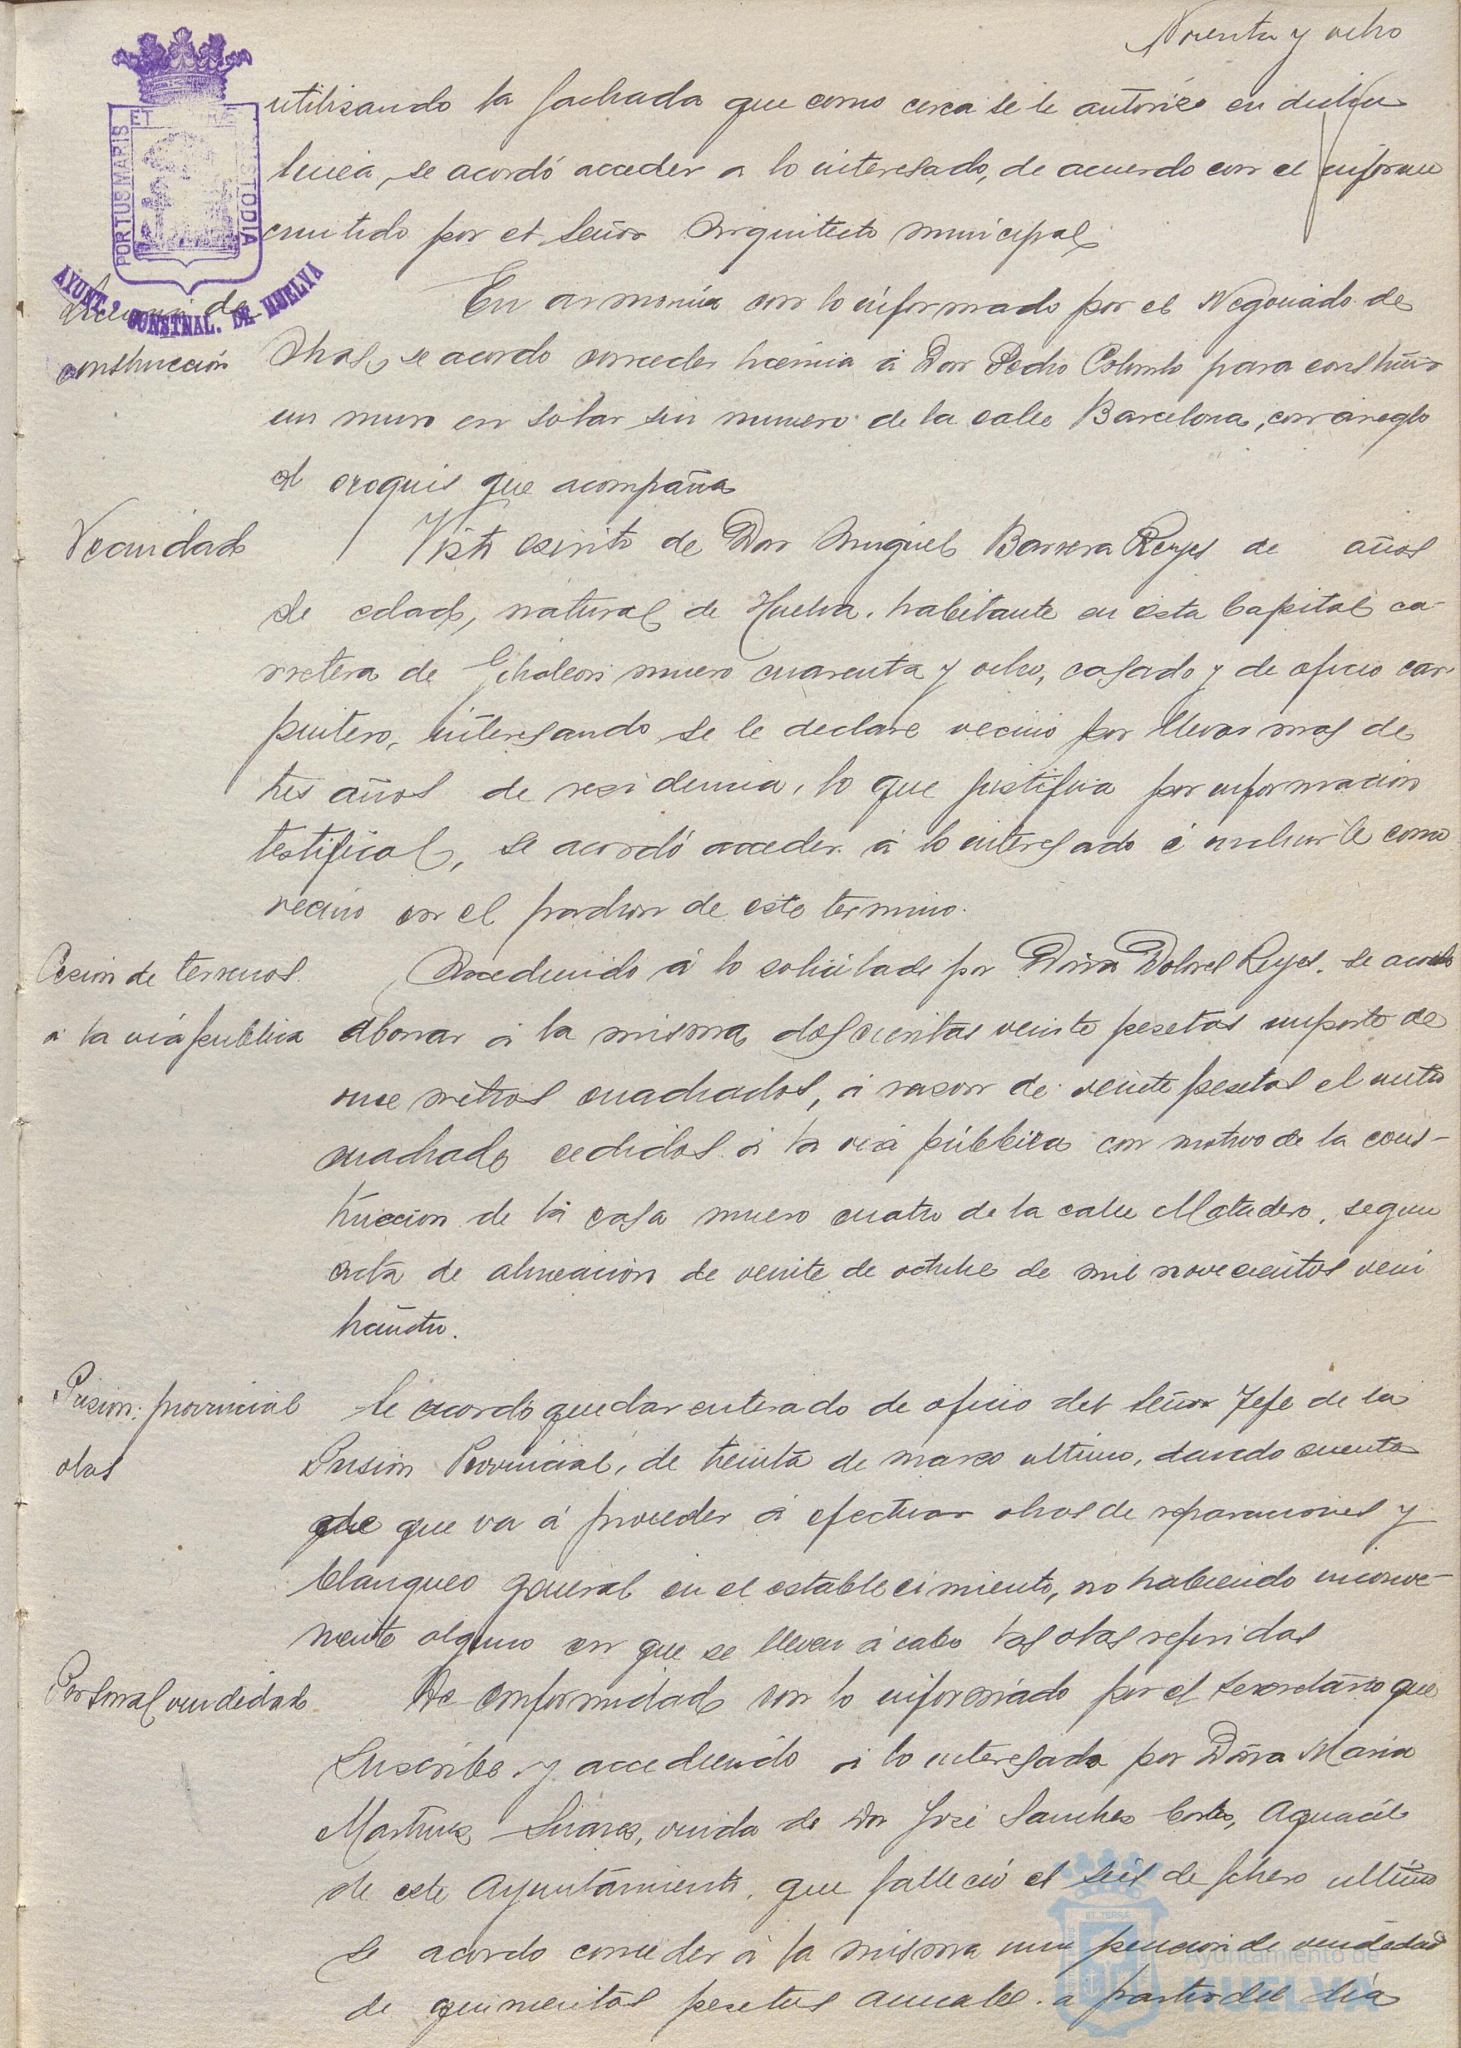 Noventa y ocho
utilizando la fachada que como cerca se le autorizó en dicha
linea, se acordó acceder a lo interesado, de acuerdo con el informe
emitido por el Señor Arquitecto municipal.
PORTUS MARIS ET TERRAE CUSTODIA
AYUNT.º CONSTNAL. DE HUELVA
Licencia de
construcción
En armonia con lo informado por el Negociado de
Obras, se acordo conceder licencia á Don Pedro Colombo para construir
un muro en solar sin numero de la calle Barcelona, con arreglo
al croquis que acompaña
Vecindad
Visto escrito de Don Miguel Barrera Reyes de años
de edad, natural de Huelva, habitante en esta Capital ca-
rretera de Gibraleon numero cuarenta y ocho, casado y de oficio car-
pintero, interesando se le declare vecino por llevar mas de
tres años de residencia, lo que justifica por informacion
testifical, se acordó acceder á lo interesado é incluirle como
vecino en el padron de este termino.
Cesion de terrenos
a la via publica
Accediendo á lo solicitado por Doña Dolores Reyes, se acordo
abonar á la misma doscientas veinte pesetas importe de
once metros cuadrados, á razon de veinte pesetas el metro
cuadrado cedidos á la via pública con motivo de la cons-
truccion de la casa numero cuatro de la calle Matadero, segun
acta de alineacion de veinte de octubre de mil novecientos vein
ticuatro.
Prision provincial
obras
Se acordó quedar enterado de oficio del Señor Jefe de la
Prision Provincial, de treinta de marzo ultimo, dando cuenta
de que va á proceder á efectuar obras de reparaciones y
blanqueo general en el establecimiento, no habiendo inconve-
niente alguno en que se lleven á cabo las obras referidas
Personal viudedad
De conformidad con lo informado por el Secretario que
suscribe y accediendo á lo interesado por Doña Maria
Martinez Suarez, viuda de Don José Sanchez Cortes, Aguacil
de este Ayuntamiento, que falleció el seis de febrero ultimo
se acordo conceder á la misma una pension de viudedad
de quinientas pesetas anuales a partir del dia
Ayuntamiento de
HUELVA